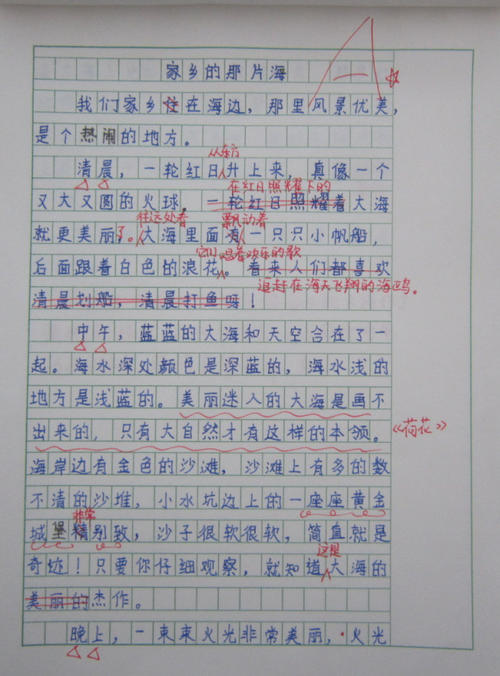 家乡的那片海
我们家乡住在海边，那里风景优美，
是个热闹的地方。
从东方
清晨，一轮红日升上来，真像一个
在红日照耀下的
又大又圆的火球。一轮红日照耀着大海
往远处看 飘动着
就更美丽了。大海里面有一只只小帆船，
它们唱着欢乐的歌
后面跟着白色的浪花。看来人们都喜欢
追赶在海天飞翔的海鸥。
清晨划船，清晨打鱼呀！
中午，蓝蓝的大海和天空合在了一
起。海水深处颜色是深蓝的，海水浅的
地方是浅蓝的。美丽迷人的大海是画不
出来的，只有大自然才有这样的本领。《荷花》
海岸边有金色的沙滩，沙滩上有多的数
不清的沙堆，小水坑边上的一座座黄金
非常
城堡精别致，沙子很软很软，简直就是
这是
奇迹！只要你仔细观察，就知道大海的
美丽的杰作。
晚上，一束束火光非常美丽，火光